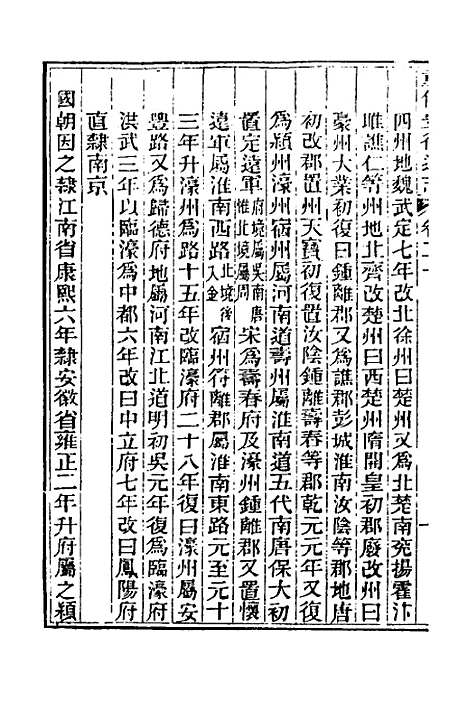 四州地魏武定七年改北徐州曰楚州又為北楚南兖揚霍汴
睢譙仁等州地北齊改楚州曰西楚州隋開皇初郡廢改州曰
豪州大業初復曰鍾離郡又為譙郡彭城淮南汝陰等郡地唐
初改郡置州天寶初復置汝陰鍾離壽春等郡乾元元年又復
為潁州濠州宿州屬河南道壽州屬淮南道五代南唐保大初
置定遠軍府境屬吳南唐惟北境屬周宋為壽春府及濠州鍾離郡又置懷
遠軍屬淮南西路北境後入金宿州符離郡屬淮南東路元至元十
三年升濠州為路十五年改臨濠府二十八年復曰濠州屬安
豐路又為歸德府地屬河南江北道明初吳元年復為臨濠府
洪武三年以臨濠為中都六年改曰中立府七年改曰鳳陽府
直隸南京
國朝因之隸江南省康熙六年隸安徽省雍正二年升府屬之潁